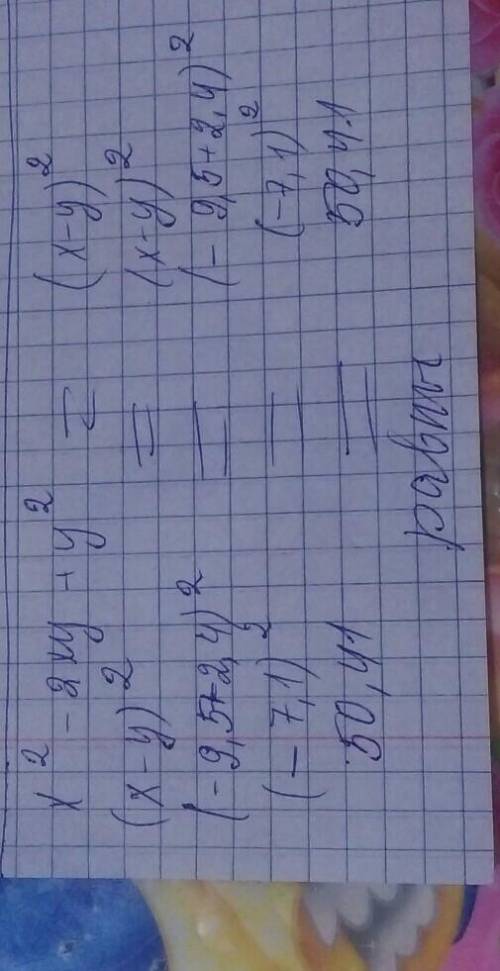 x² - 2xy + y² = (x-y)²
(x-y)² = (x-y)²
(-9,5+2,4)² = (-9,5+2,4)²
(-7,1)² = (-7,1)²
50,41 = 50,41
равны